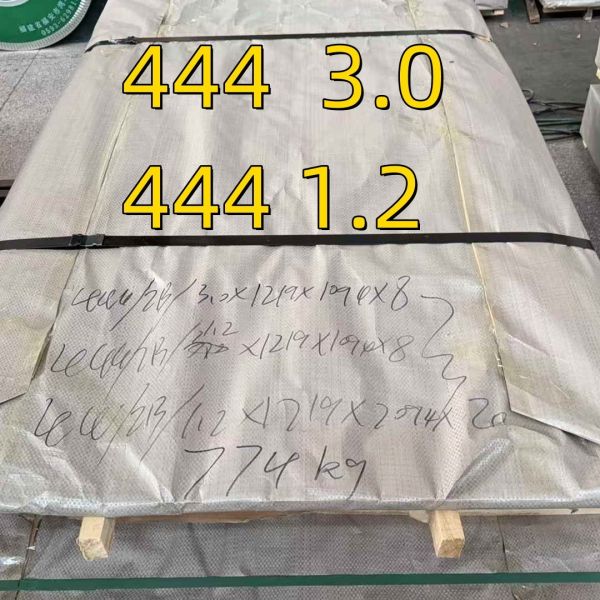 444 3.0
444 1.2
444/2B/3.0×1219×1094×8
444/2B/1.2×1219×1094×8
444/2B/1.2×1219×2094×20
774kg